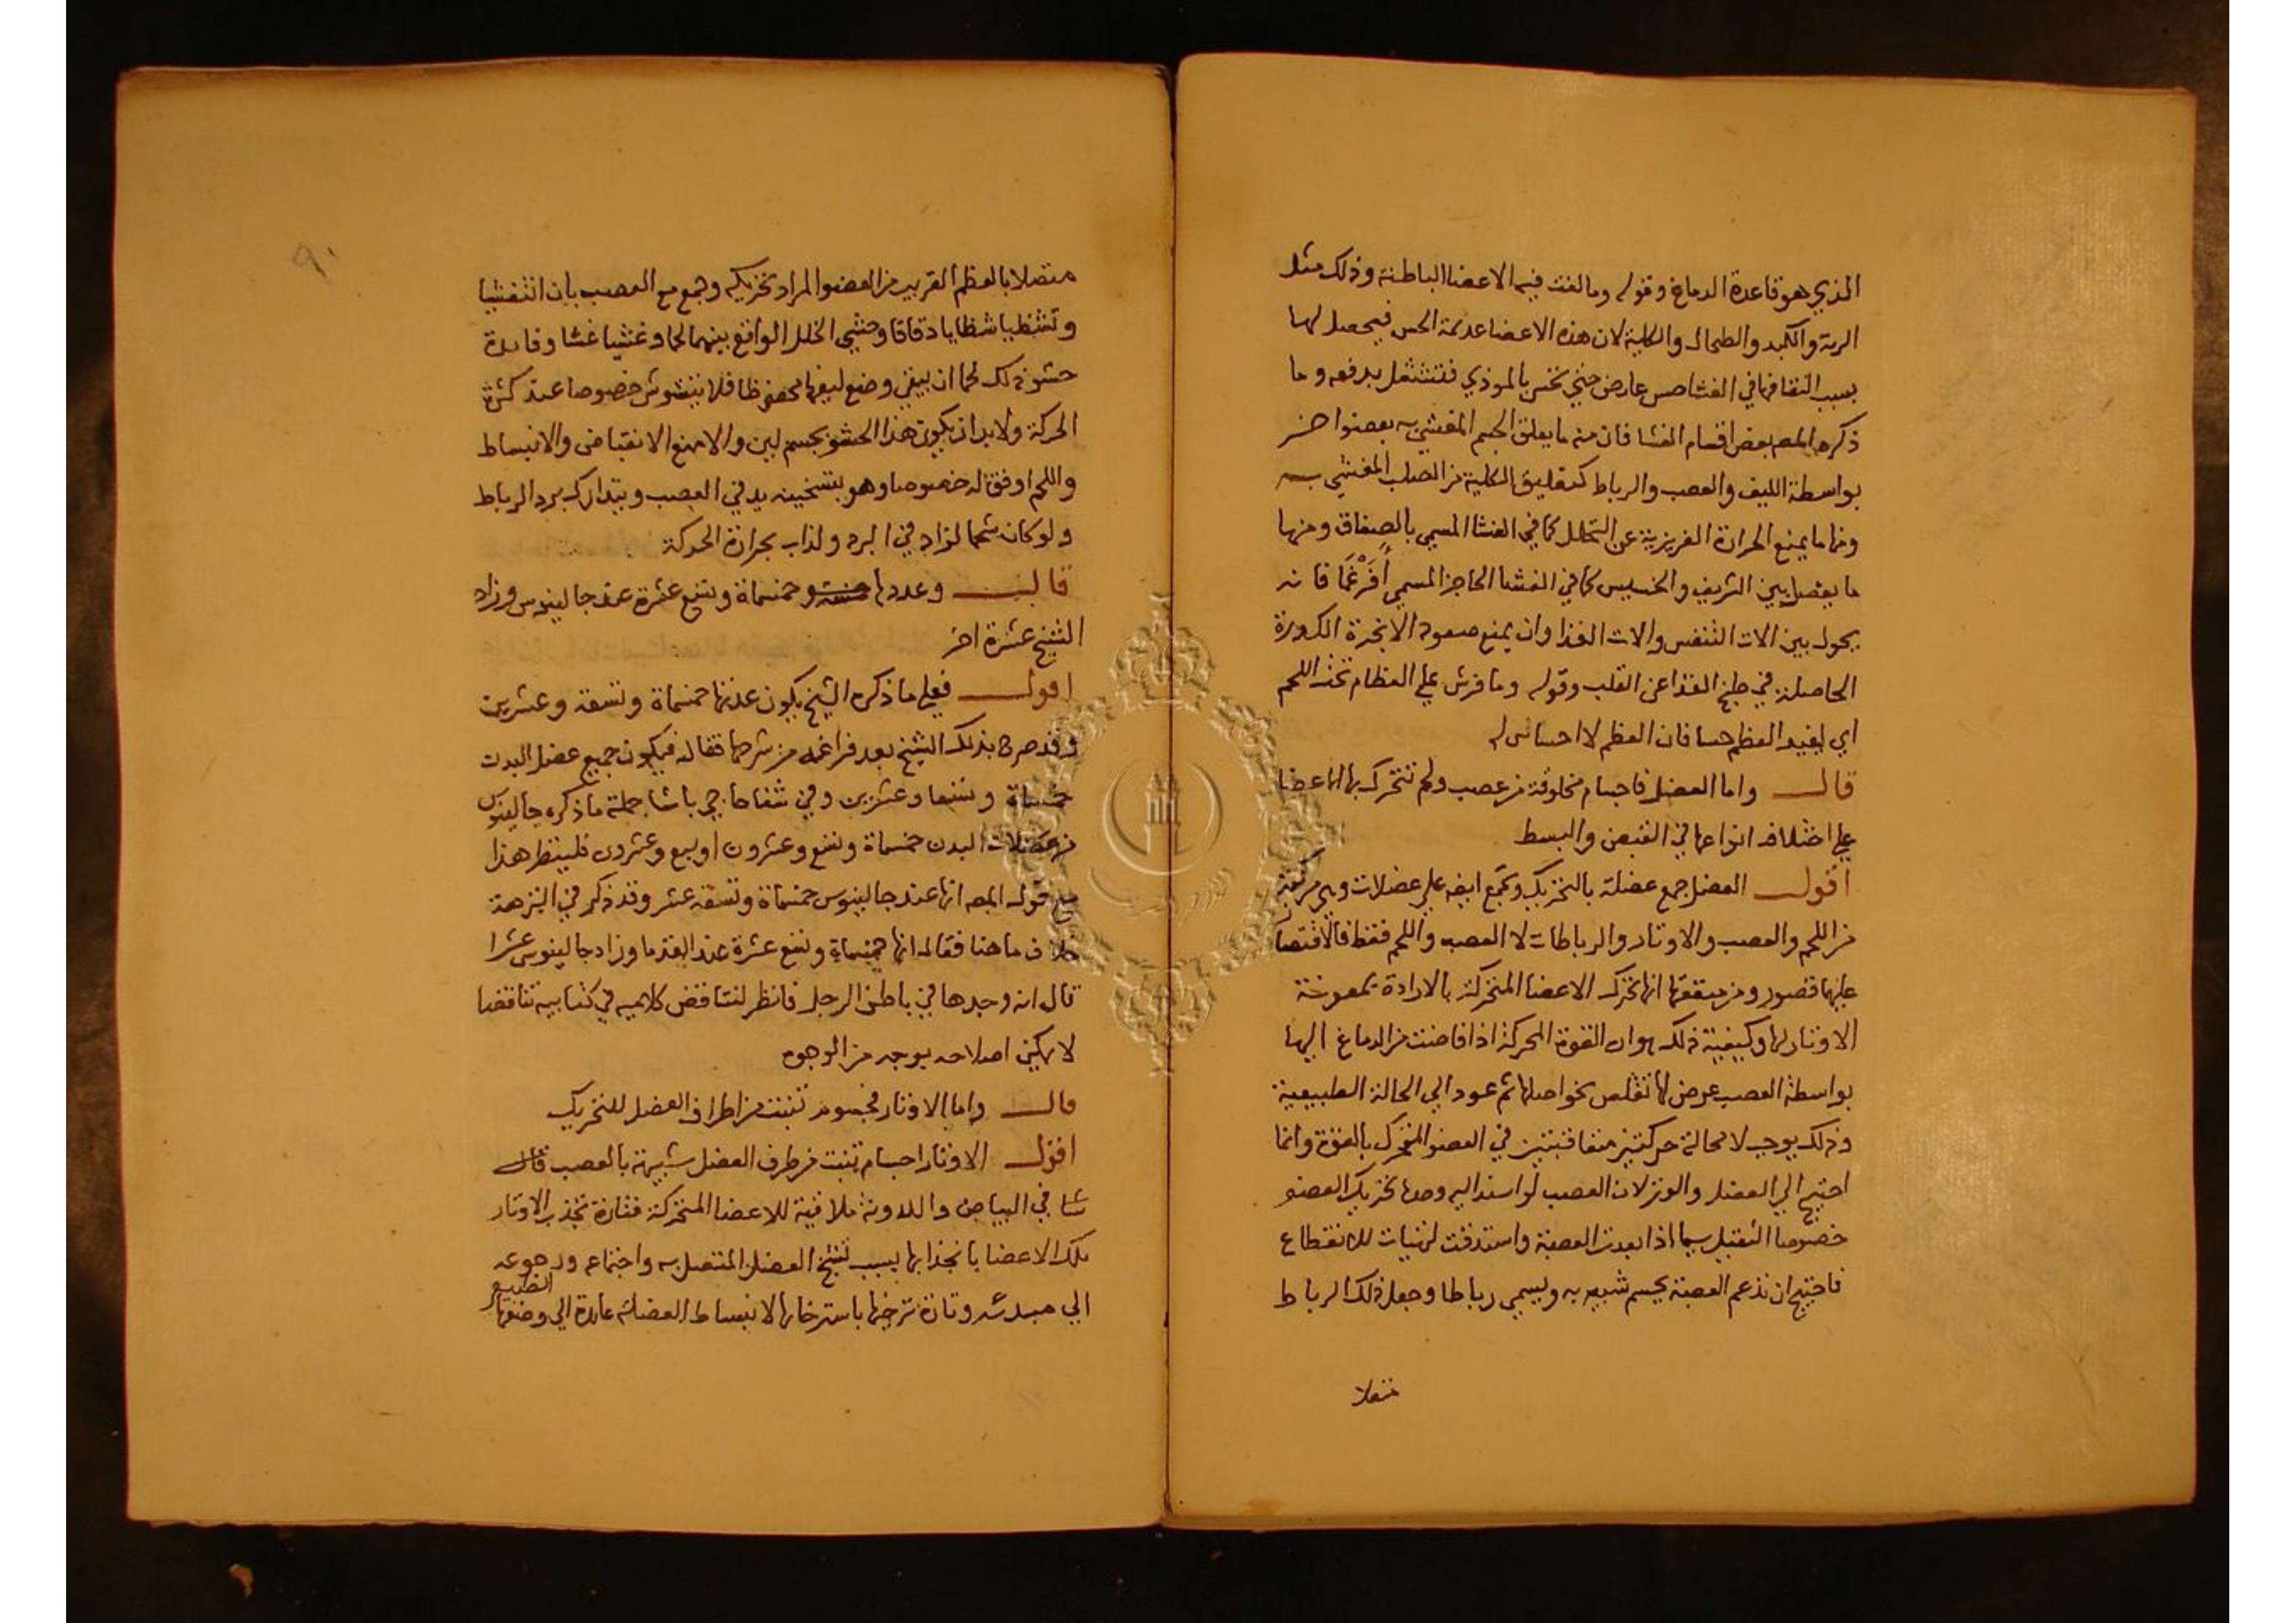 الذي هو قاعدة الدماغ وقوله وما لفت فيه الاعضا الباطنة وذلك مثل
الرية والكبد والطحال والكلية لان هذه الاعضا عديمة الحس فيحصل لها
بسبب التفافها في الغشا حس عارض حتي تحس بالموذي فتشتغل بدفعه وما
ذكره المص بعض اقسام الغشا فان منه ما يعلق الجسم المغشي به بعضو اخر
بواسطة الليف والعصب والرباط كتعليق الكلية من الصلب المغشي به
ومنها ما يمنع الحرارة الغريزية عن التحلل كما في الغشا المسمي بالصفاق ومنها
ما يفصل بين الشريف والخسيس كما في الغشا الحاجز المسمي أفرغما فانه
يحول بين الات التنفس والات الغذا وان يمنع صعود الابخرة الكدورة
الحاصلة في طبخ الغذا عن القلب وقوله وما فرش علي العظام تحت اللحم
اي ليفيد العظم حسا فان العظم لا احساس له
قال واما العضل فاجسام مخلوقة من عصب ولحم تتحرك بها الاعضا
علي اختلاف انواعها في القبض والبسط
اقول العضل جمع عضلة بالتحريك وتجمع ايضه علي عضلات وهي مركبة
من اللحم والعصب والاوتار والرباطات لا العصب واللحم فقط فالاقتصار
عليهما قصور ومن منفعتها انها تحرك الاعضا المتحركة بالارادة بمعونة
الاوتار لها وكيفية ذلك هو ان القوة المحركة اذا فاضت من الدماغ اليها
بواسطة العصب عرض لها تقلص نحو اصلها ثم عود الي الحالة الطبيعية
وذلك يوجب لا محالة حركتين متعاقبتين في العضو المتحرك بالقوة وانما
احتيج الي العضل والوتر لان العصب لو اسند اليه وحده تحريك العضو
خصوصا الثقيل سيما اذا بعدت العصبة واستدقت لتهيات للانقطاع
فاحتيج ان تدعم العصبة بجسم شبيه به ويسمي رباطا وجعل ذلك الرباط
متصلا
٩٠
متصلا بالعظم القريب من العضو المراد تحريكه وجمع مع العصب بان انتفشيا
وتشظيا شظايا دقاقا وحشي الخلل الواقع بينهما لحما وغشيا غشا وفايدة
حشو ذلك لحما ان يبقي وضع ليفها محفوظا فلا يتشوش خصوصا عند كثرة
الحركة ولا بد ان يكون هذا الحشو بجسم لين والا منع الانقباض والانبساط
واللحم اوفق له خصوصا وهو بتسخينه يدفي العصب ويتدارك برد الرباط
ولو كان شحما لزاد في البرد ولذاب بحرارة الحركة
قال وعددها خمسماة وتسع عشرة عند جالينوس وزاد
الشيخ عشرة اخر
اقول فعلي ما ذكره الشيخ يكون عدتها خمسماة وتسعة وعشرين
وقد صرح بذلك الشيخ بعد فراغه من شرحها فقال فيكون جميع عضل البدن
خمسماة وتسعا وعشرين وفي شفا حاجي باشا جملة ما ذكره جالينوس
من عضلات البدن خمسماة وتسع وعشرون او سبع وعشرون فلينظر هذا
مع قول المص انها عند جالينوس خمسماة وتسعة عشر وقد ذكر في النزهة
خلاف ما هنا فقال انها خمسماة وتسع عشرة عند القدما وزاد جالينوس عشرا
قال انه وجدها في باطن الرجل فانظر لتناقض كلاميه في كتابيه تناقضا
لا يمكن اصلاحه بوجه من الوجوه
قال واما الاوتار فجسوم تنبت من اطراف العضل للتحريك
اقول الاوتار اجسام تنبت من طرف العضل شبيهة بالعصب
في البياض واللدونة ملاقية للاعضا المتحركة فتارة تجذب الاوتار
تلك الاعضا بانجذابها بسبب تشنج العضل المتصل به واجتماعه ورجوعه
الي مبدئه وتارة ترخيها باسترخايها لانبساط العضلة عايدة الي وضعها
الطبيعي